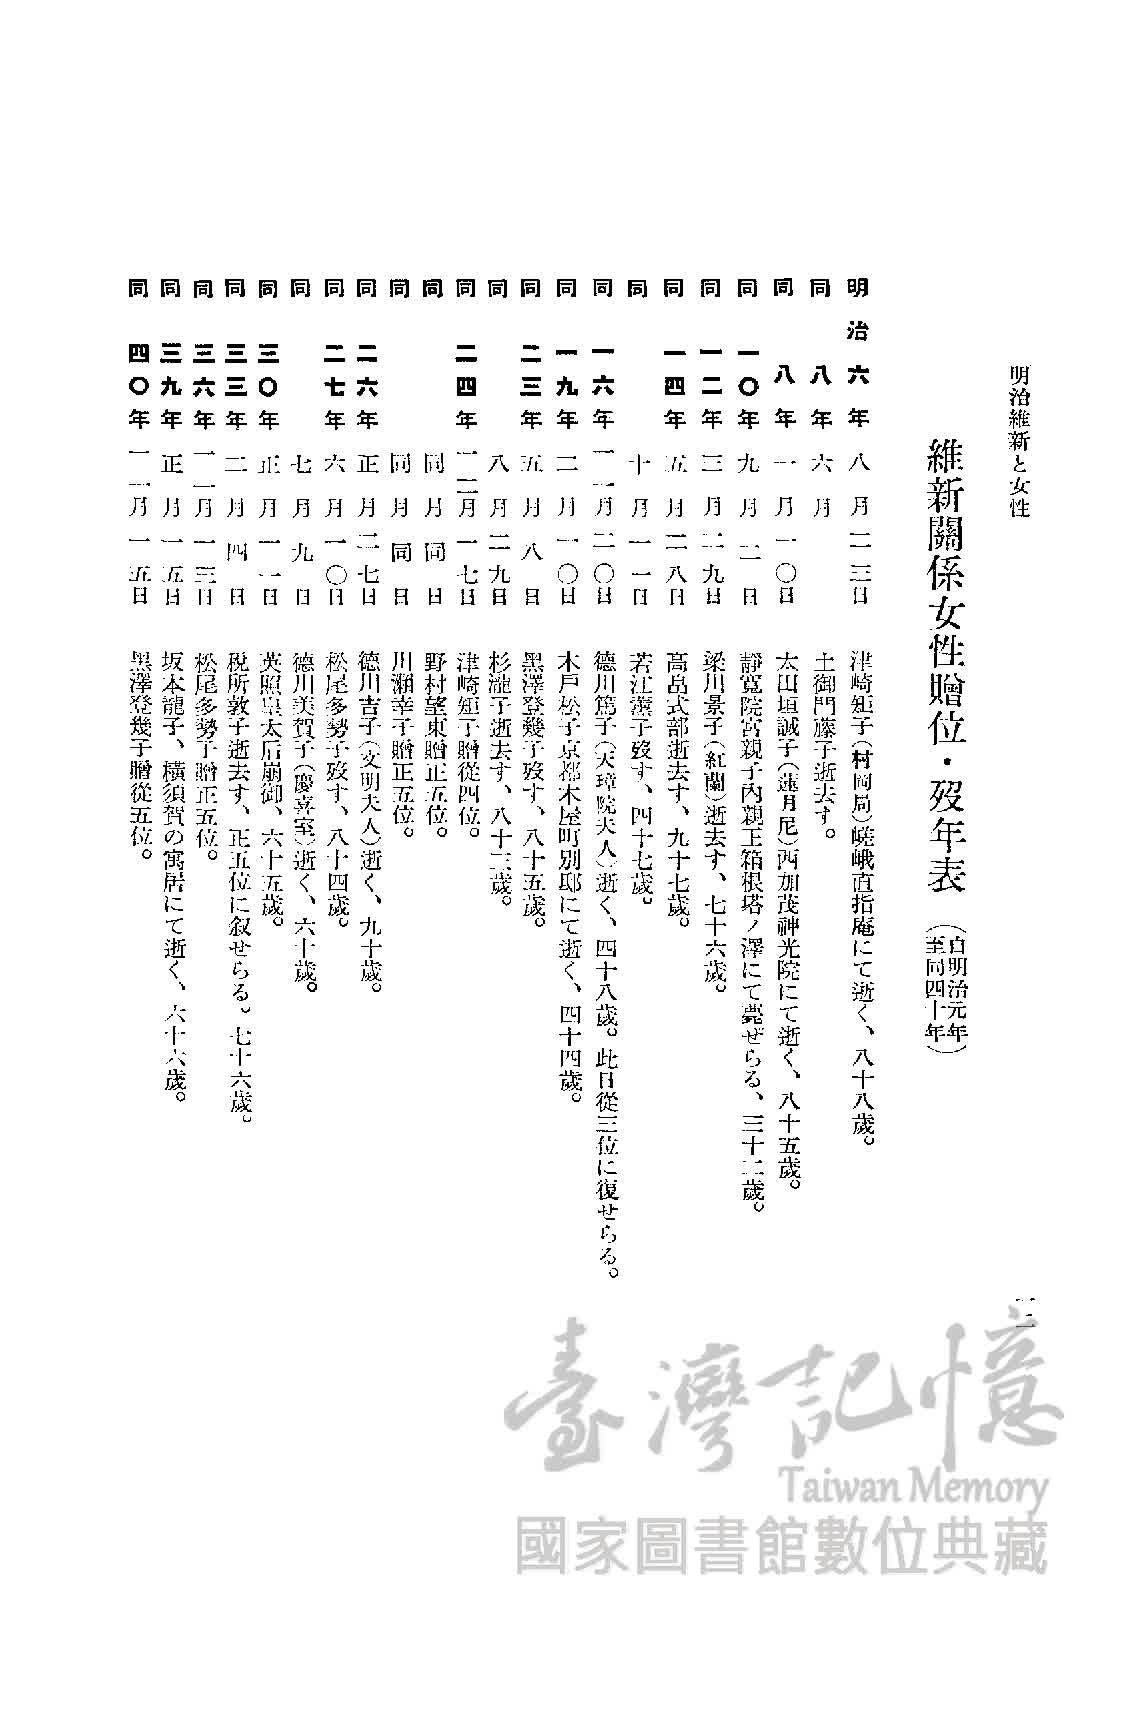 明治維新と女性
維新關係女性贈位・歿年表
(自明治元年
至同四十年)
明治六年 八月二三日 津崎矩子(村岡局)嵯峨直指庵にて逝く、八十八歲。
同 八年 六月 土御門藤子逝去す。
同 八年 一月一〇日 太田垣誠子(蓮月尼)西加茂神光院にて逝く、八十五歲。
同 一〇年 九月二日 靜寬院宮親子內親王箱根塔ノ澤にて薨ぜらる、三十二歲。
同 一二年 三月二九日 梁川景子(紅蘭)逝去す、七十六歲。
同 一四年 五月二八日 高畠式部逝去す、九十七歲。
同 十月一一日 若江薰子歿す、四十七歲。
同 一六年 一一月二〇日 德川篤子(天璋院夫人)逝く、四十八歲。此日從三位に復せらる。
同 一九年 二月一〇日 木戶松子京都木屋町別邸にて逝く、四十四歲。
同 二三年 五月八日 黑澤登幾子歿す、八十五歲。
同 八月二九日 杉瀧子逝去す、八十三歲。
同 二四年 一二月一七日 津崎矩子贈從四位。
同 同月同日 野村望東贈正五位。
同 同月同日 川瀨幸子贈正五位。
同 二六年 正月二七日 德川吉子(文明夫人)逝く、九十歲。
同 二七年 六月一〇日 松尾多勢子歿す、八十四歲。
同 七月九日 德川美賀子(慶喜室)逝く、六十歲。
同 三〇年 正月一一日 英照皇太后崩御、六十五歲。
同 三三年 二月四日 稅所敦子逝去す、正五位に叙せらる。七十六歲。
同 三六年 一一月一三日 松尾多勢子贈正五位。
同 三九年 正月一五日 坂本龍子、橫須賀の寓居にて逝く、六十六歲。
同 四〇年 一一月一五日 黑澤登幾子贈從五位。
一二
臺灣記憶
Taiwan Memory
國家圖書館數位典藏